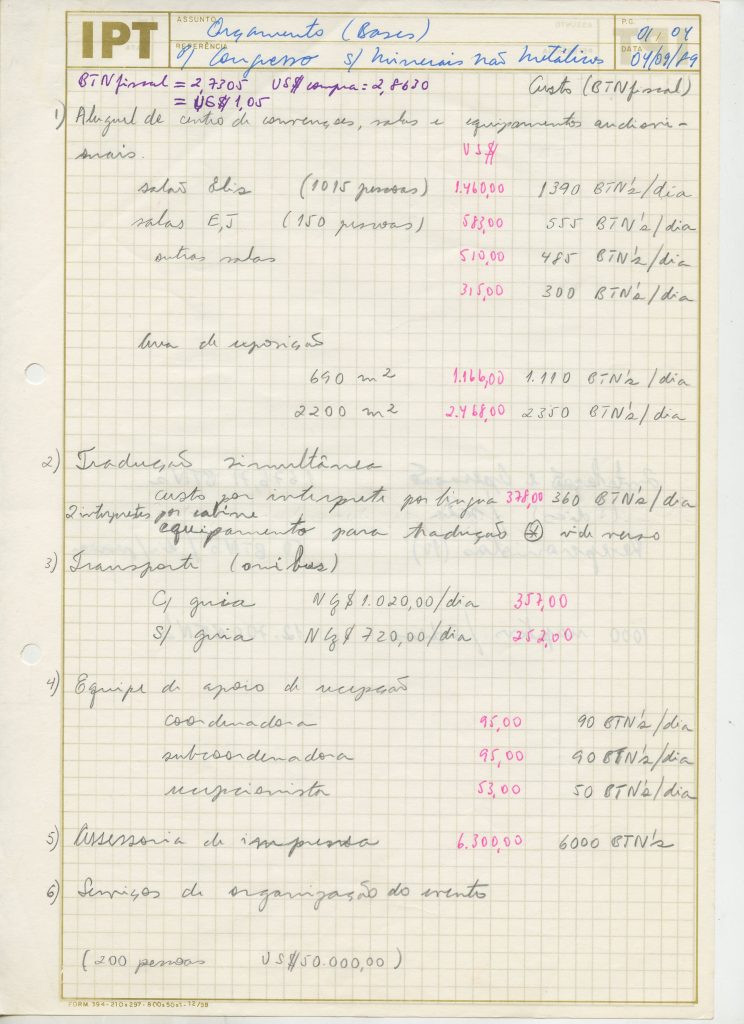 IPT ASSUNTO Orçamento (Bases) P.G. 01/04
REFERÊNCIA p/ Congresso s/ Minerais não Metálicos DATA 04/09/89
BTN fiscal = 2,7305 US$ compra = 2,8630 Custo (BTN fiscal)
= US$ 1,05
1) Aluguel de centro de convenções, salas e equipamentos audiovi-
suais. US$
salão Elis (1015 pessoas) 1.460,00 1390 BTN's/dia
salas E,J (150 pessoas) 583,00 555 BTN's/dia
outras salas 510,00 485 BTN's/dia
315,00 300 BTN's/dia
área de exposição
690 m2 1.166,00 1.110 BTN's/dia
2200 m2 2.468,00 2350 BTN's/dia
2) Tradução simultânea
custo por interprete por lingua 378,00 360 BTN's/dia
2 interpretes por cabine
equipamento para tradução * vide verso
3) Transporte (onibus)
C/ guia NCz$ 1.020,00/dia 357,00
S/ guia NCz$ 720,00/dia 252,00
4) Equipe de apoio de recepção
coordenadora 95,00 90 BTN's/dia
subcoordenadora 95,00 90 BTN's/dia
recepcionista 53,00 50 BTN's/dia
5) Assessoria de imprensa 6.300,00 6000 BTN's
6) Serviços de organização do evento
(200 pessoas US$ 50.000,00)